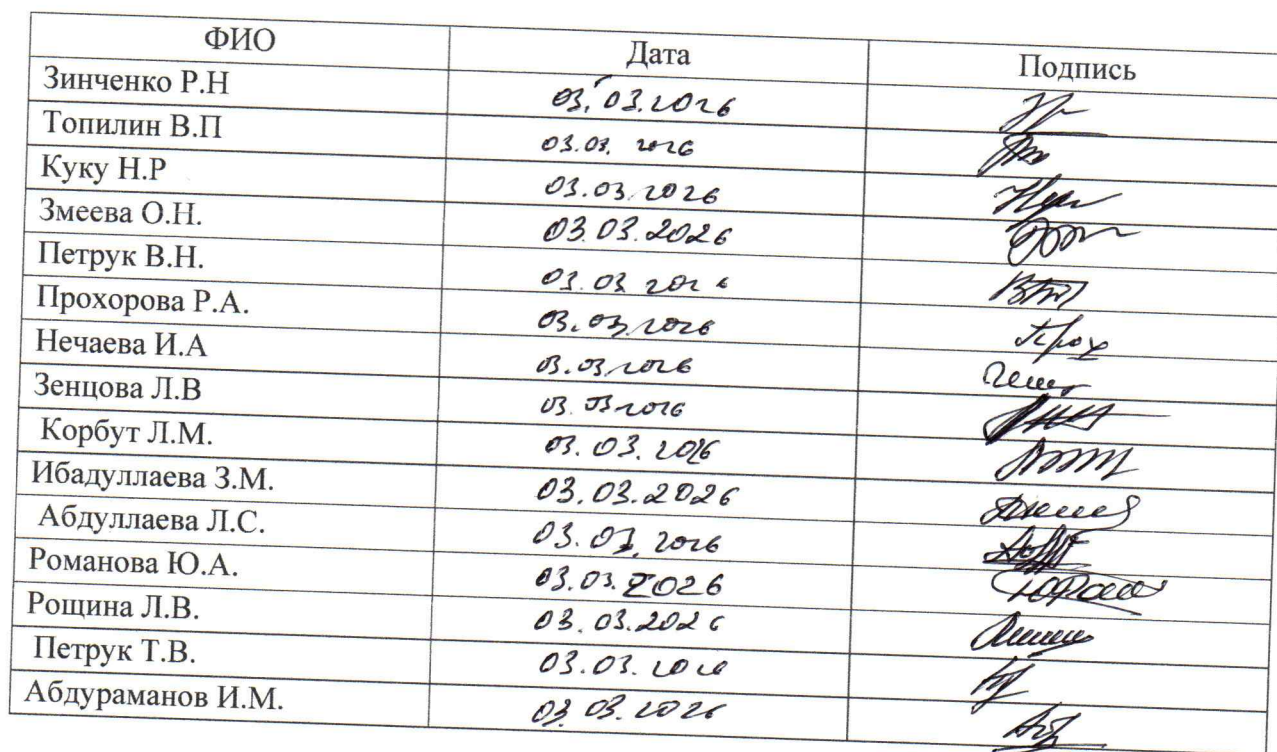 ФИО Дата Подпись
Зинченко Р.Н 03.03.2026
Топилин В.П 03.03.2026
Куку Н.Р 03.03.2026
Змеева О.Н. 03.03.2026
Петрук В.Н. 03.03.2026
Прохорова Р.А. 03.03.2026 Прох
Нечаева И.А 03.03.2026
Зенцова Л.В 03.03.2026
Корбут Л.М. 03.03.2026
Ибадуллаева З.М. 03.03.2026
Абдуллаева Л.С. 03.03.2026
Романова Ю.А. 03.03.2026
Рощина Л.В. 03.03.2026
Петрук Т.В. 03.03.2026
Абдураманов И.М. 03.03.2026